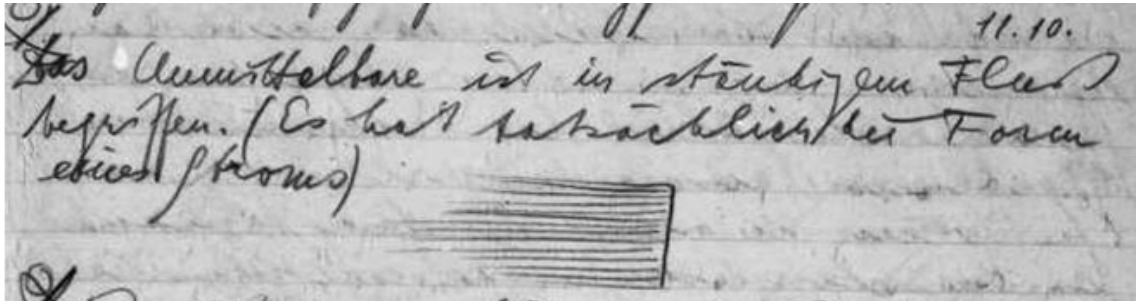 11.10.
Das Unmittelbare ist in ständigem Fluß
begriffen. (Es hat tatsächlich die Form
eines Stroms)